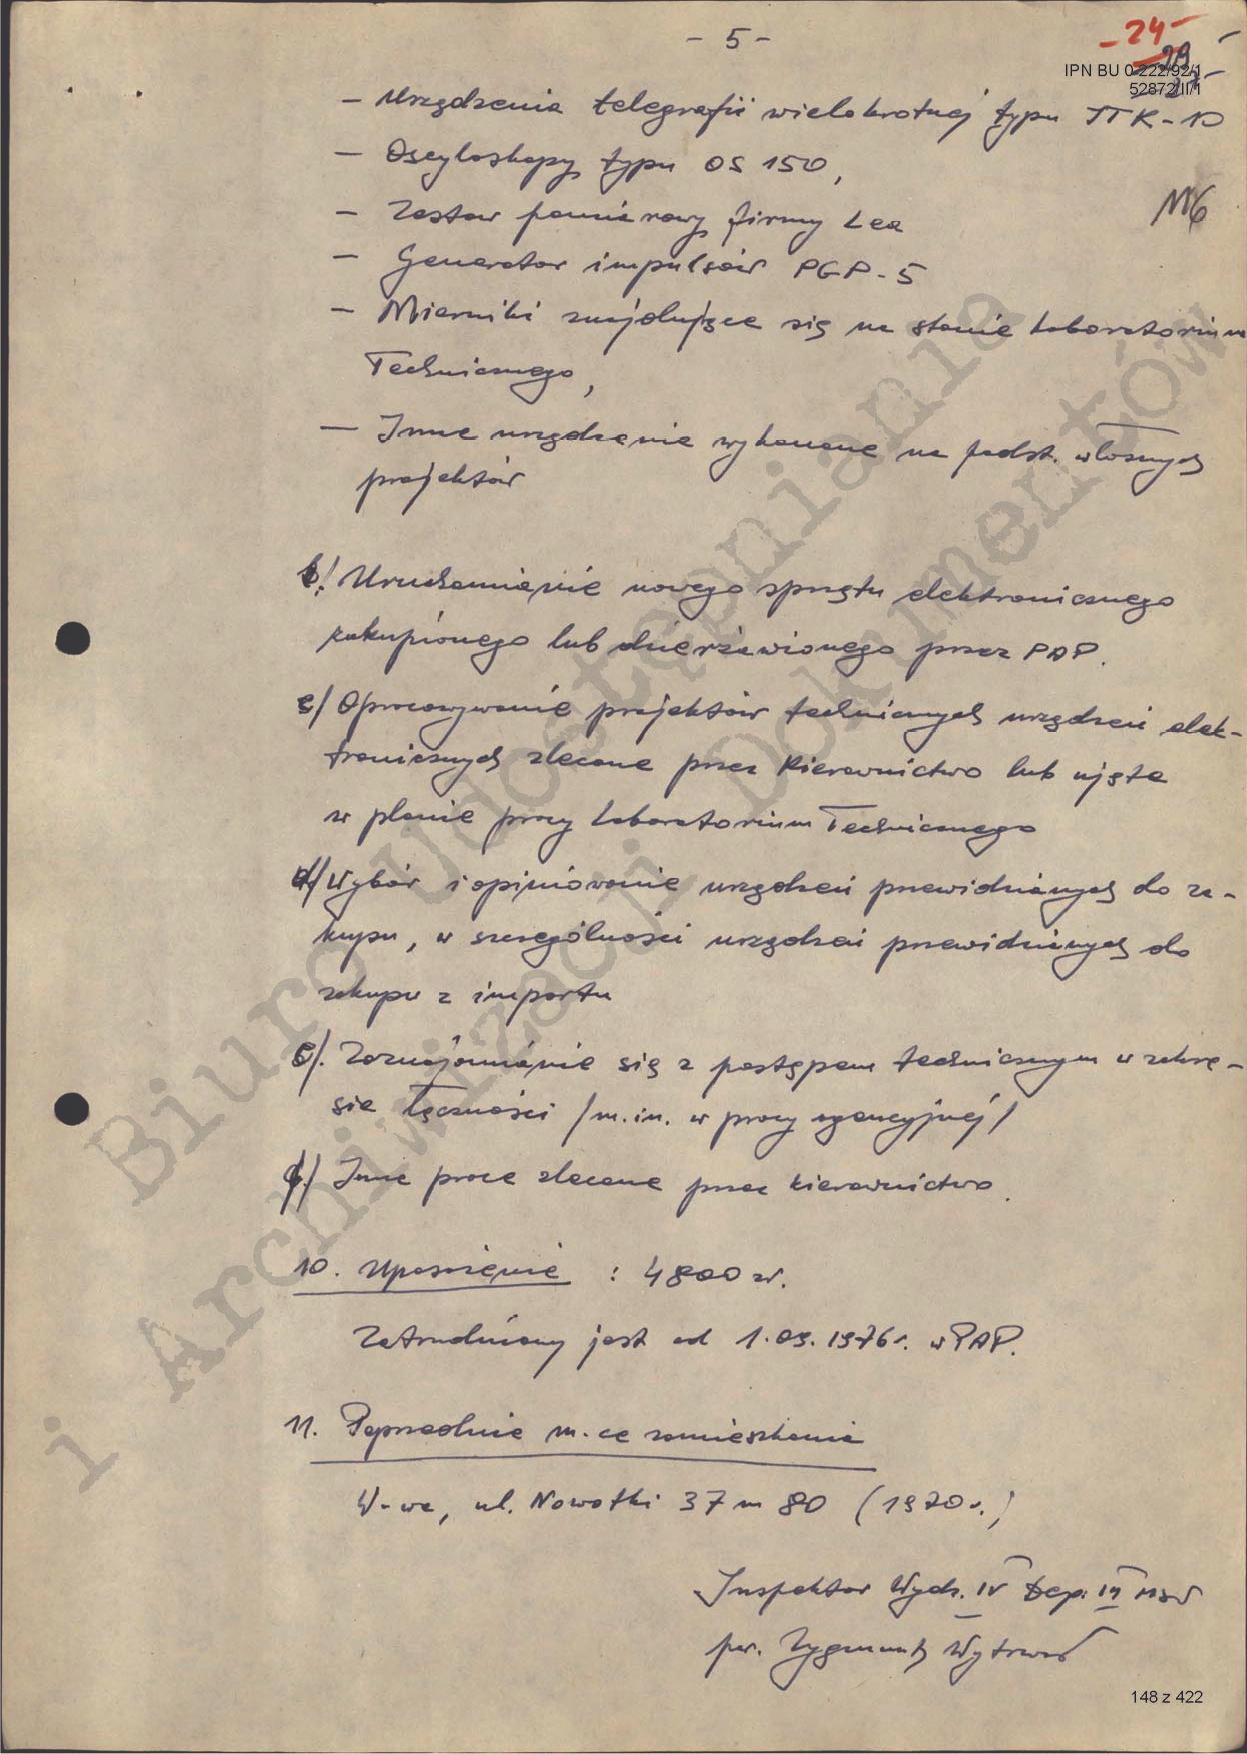 - 5 -
- 24 -
IPN BU 0 222/92/1
52872/II/1
- Urządzenia telegrafii wielokrotnej typu TTK-10
- Oscyloskopy typu OS 150,
116
- Zestaw pomiarowy firmy Lea
- Generator impulsów PGP-5
- Mierniki znajdujące się na stanie Laboratorium
Technicznego,
- Inne urządzenia wykonane na podst. własnych
projektów
b/ Uruchamianie nowego sprzętu elektronicznego
zakupionego lub dzierżawionego przez PAP.
c/ Opracowywanie projektów technicznych urządzeń elek-
tronicznych zlecone przez Kierownictwo lub ujęte
w planie pracy Laboratorium Technicznego
d/ Wybór i opiniowanie urządzeń przewidzianych do za-
kupu, w szczególności urządzeń przewidzianych do
zakupu z importu
e/. Zaznajomianie się z postępem technicznym w zakre-
sie łączności /m.in. w pracy agencyjnej/
f/ Inne prace zlecone przez kierownictwo.
10. Uposażenie : 4800 zł.
Zatrudniony jest od 1.09.1976r. w PAP.
11. Poprzednie m-ce zamieszkania
W-wa, ul. Nowotki 37 m 80 (1970r.)
Inspektor Wydz. IV Dep. III MSW
por. Zygmunt Wytrwał
148 z 422
Biuro Udostępniania
i Archiwizacji Dokumentów